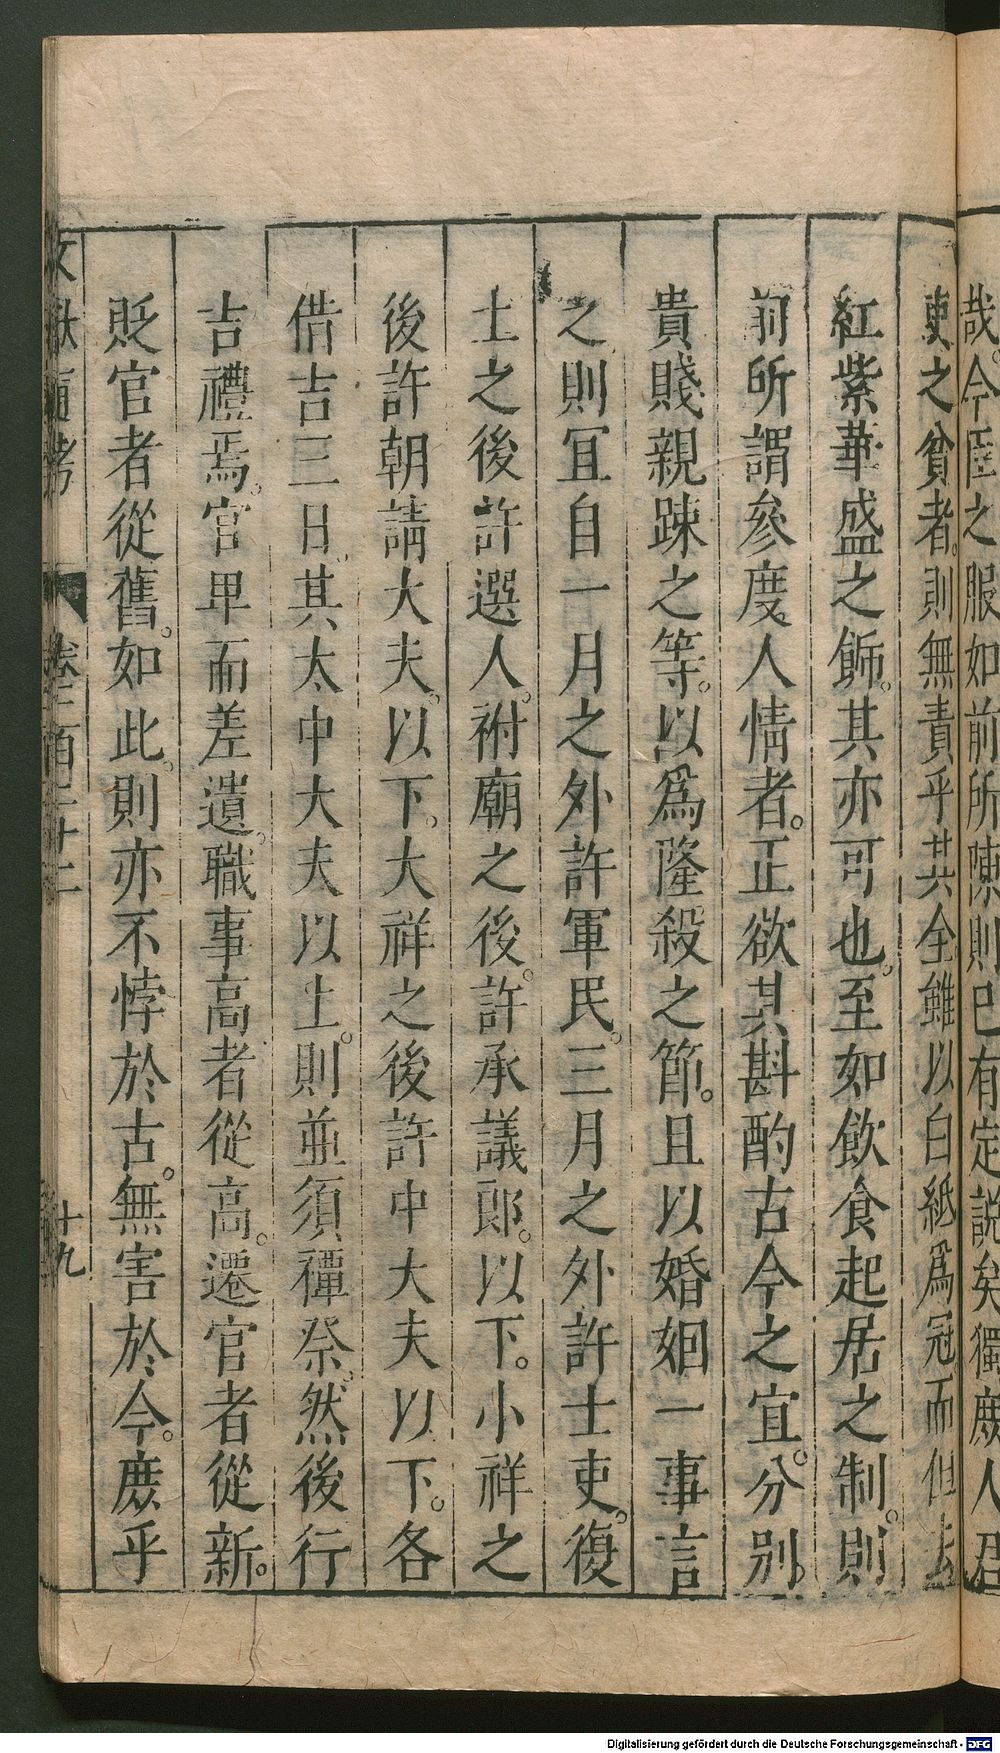 哉。今臣之服如前所陳則已有定説矣獨庶人君
吏之貧者。則無責乎其全。雖以白紙爲冠而但去
紅紫華盛之飾。其亦可也。至如飲食起居之制。則
前所謂參度人情者。正欲其斟酌古今之宜。分別
貴賤親踈之等。以爲隆殺之節。且以婚姻一事言
之則冝自一月之外許軍民。三月之外許士吏。復
土之後許選人。祔廟之後。許承議郎。以下。小祥之
後許朝請大夫。以下。大祥之後許中大夫以下。各
借吉三日。其太中大夫以上。則並須禫祭。然後行
吉禮焉。官卑而差遺。職事高者從高。遷官者從新。
貶官者從舊。如此。則亦不悖於古。無害於今。庶乎
文獻通考 卷一百二十二 十九
Digitalisierung gefördert durch die Deutsche Forschungsgemeinschaft - DFG